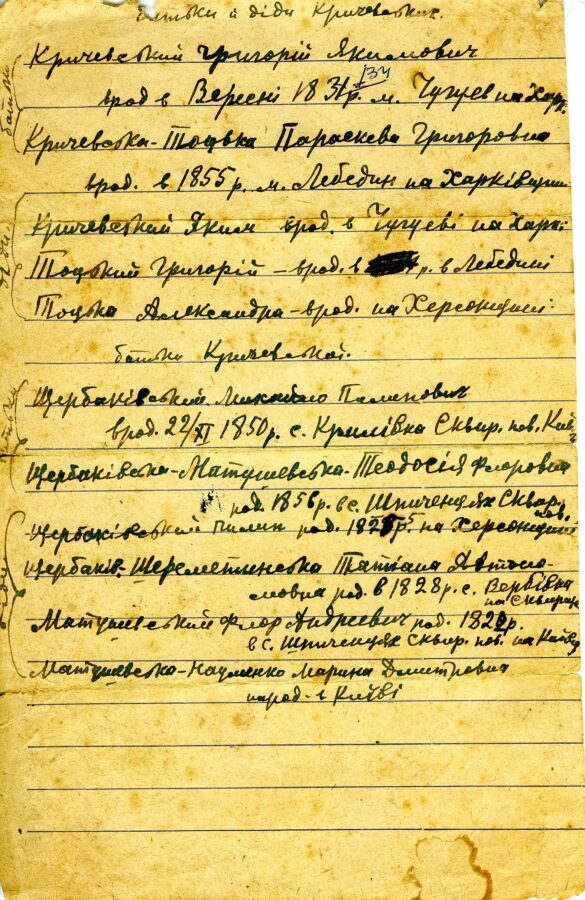 Батьки й діди Кричевських.
Кричевський Григорій Якимович
врод в Вересні 1831р. м. Чугуев на Харк.
134
батьки
Кричевська-Тоцька Параскева Григоровна
врод. в 1855 р. м. Лебедин на Харківщині
Кричевський Яким врод. в Чугуеві на Харк.
діди
Тоцький Григорій – врод. в р. в Лебедині
Тоцька Александра – врод. на Херсонщині.
батьки Кричевської.
Щербаківський Михайло Пилипович
врод. 22/XI 1850р. с. Криливка Сквир. пов. Київ
батьки
Щербаківська-Матушевська-Теодосія Флоровна
род. 1856 р. в с. Шпиченцях Сквир. пов.
Щербаківський Пилип род. 1825р. на Херсонщині
діди
Щербаків. Шереметинська Татіана Автоно-
мовна род. в 1828 р. с. Вербівка
на Сквирщ.
Матушевський Флор Андриевич род. 1828р.
в с. Шпиченцях Сквир. пов. на Київщ
Матушевсько-Науменко Марина Дмитровна
народ. в Київі